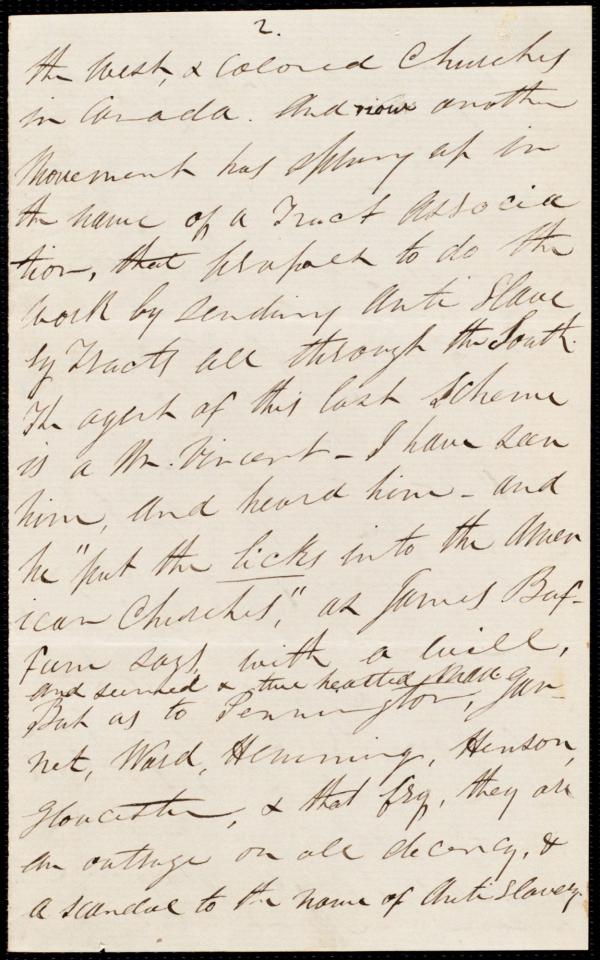 2.
the West, & Colored Churches
in Canada. And now another
Movement has sprung up in
the name of a Tract Associa
tion, that proposes to do the
work by sending Anti Slave
ry Tracts all through the South.
The agent of this last scheme
is a Mr. Vincent - I have seen
him, and heard him - and
he "put the licks into the Amer
ican Churches," as James Buf-
fum says, with a will,
and seemed a true hearted man.
But as to Pennington, Gar-
net, Ward, Hemming, Henson,
Gloucester, & that fry, they are
an outrage on all decency, &
a scandal to the name of Anti Slavery.